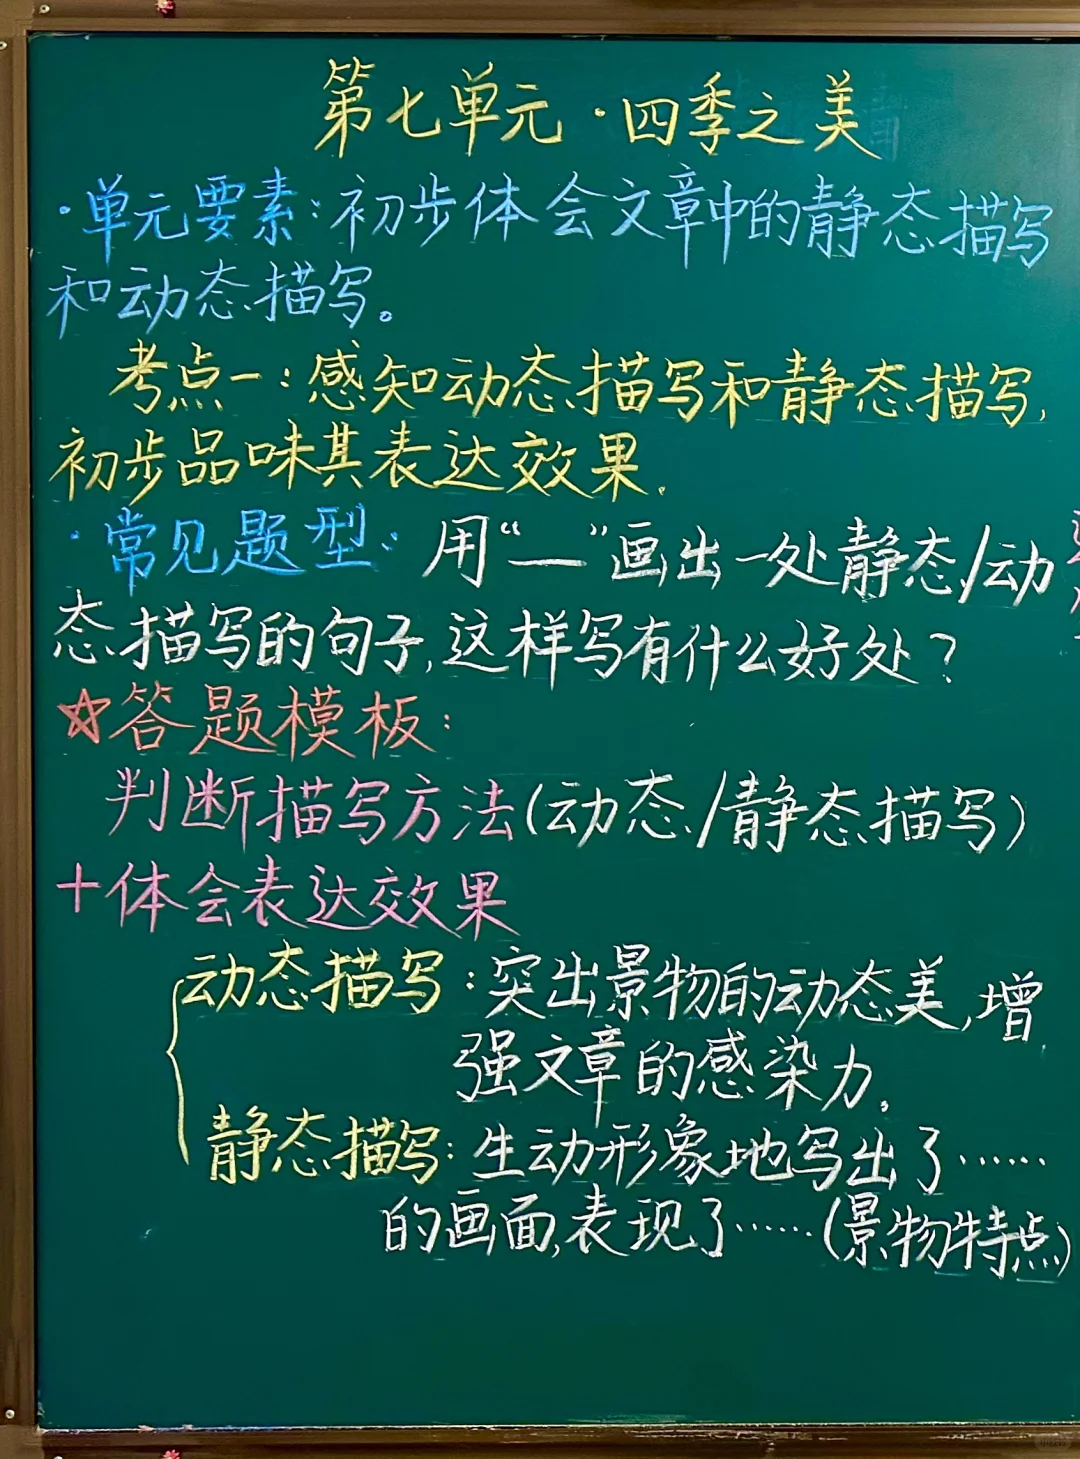 第七单元·四季之美
·单元要素:初步体会文章中的静态描写
和动态描写。
考点一:感知动态描写和静态描写,
初步品味其表达效果.
·常见题型: 用“—”画出一处静态/动
态描写的句子,这样写有什么好处?
☆答题模板:
判断描写方法(动态/静态描写)
+体会表达效果
动态描写:突出景物的动态美,增
强文章的感染力。
静态描写:生动形象地写出了……
的画面,表现了……(景物特点)